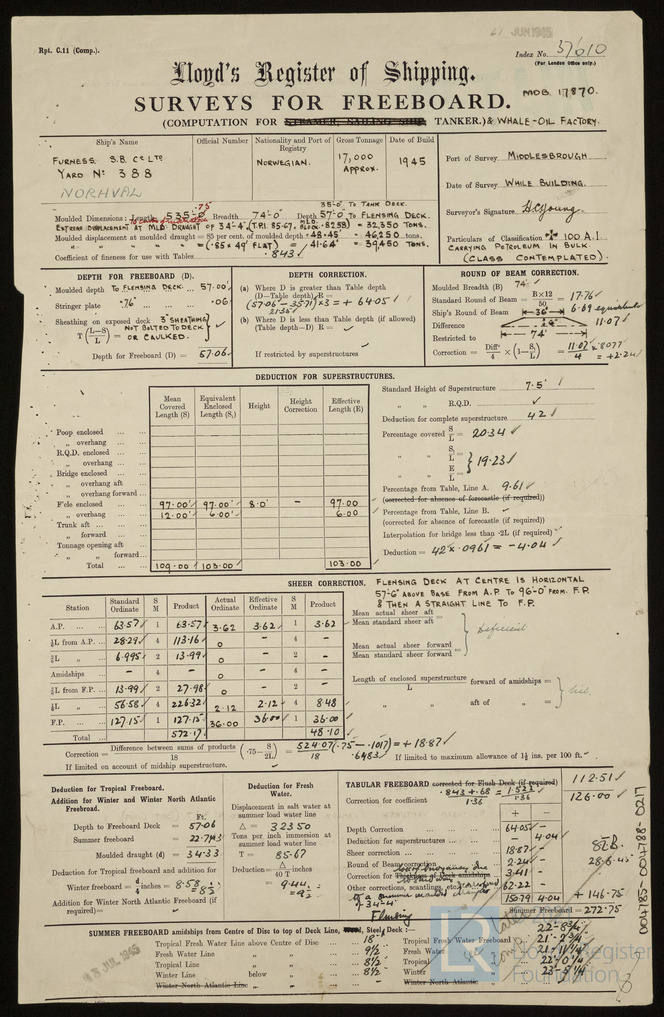 27 JUN 1945
Rpt. C.11 (Comp.).
Index No. 37610
(For London Office only.)
Lloyd's Register of Shipping.
MDB. 17870.
SURVEYS FOR FREEBOARD.
(COMPUTATION FOR STEAMER, SAILING SHIP, TANKER.) & WHALE-OIL FACTORY.
Ship's Name
Official Number
Nationality and Port of Registry
Gross Tonnage
Date of Build
FURNESS S.B. Co LTD
YARD No: 388
NORHVAL
NORWEGIAN.
17,000 APPROX.
1945
Port of Survey MIDDLESBROUGH
Date of Survey WHILE BUILDING.
Surveyor's Signature
Particulars of Classification 100 A.1.
CARRYING PETROLEUM IN BULK.
(CLASS CONTEMPLATED).
35'-0" TO TANK DECK.
Moulded Dimensions: Length 535'-0" Breadth 74'-0" Depth 57'-0" TO FLENSING DECK.
.75
EXTREME DISPLACEMENT AT MLD. DRAUGHT OF 34'-4" (T.P.I. 85.67, MLD. BLOCK .8258) = 32,350 TONS.
Moulded displacement at moulded draught = 85 per cent. of moulded depth = 48.45' = 46250 TONS.
" " " = (.85 x 49' FLAT) = 41.64' = 39,450 TONS.
Coefficient of fineness for use with Tables .843
DEPTH FOR FREEBOARD (D).
Moulded depth TO FLENSING DECK ... 57.00'
Stringer plate .76" ... .06
Sheathing on exposed deck 3" SHEATHING
NOT BOLTED TO DECK
T (L-S/L) = OR CAULKED.
Depth for Freeboard (D) = 57.06
DEPTH CORRECTION.
(a) Where D is greater than Table depth
(D-Table depth) R =
(57.06 - 35.71) x 3 = + 64.05
21.35
(b) Where D is less than Table depth (if allowed)
(Table depth-D) R =
If restricted by superstructures
ROUND OF BEAM CORRECTION.
Moulded Breadth (B) 74'
Standard Round of Beam = B x 12 / 50 = 17.76
Ship's Round of Beam = 6.69 equivalent
Difference 11.07
36'
74'
Restricted to
Correction = Diffce / 4 x (1 - S1/L) = 11.07 / 4 x .8077 = +2.24
DEDUCTION FOR SUPERSTRUCTURES.
Mean Covered Length (S)
Equivalent Enclosed Length (S1)
Height
Height Correction
Effective Length (E)
Poop enclosed
" overhang
R.Q.D. enclosed
" overhang
Bridge enclosed
" overhang aft
" overhang forward
F'cle enclosed 97.00' 97.00' 8.0' - 97.00
" overhang 12.00' 6.00' 6.00
Trunk aft
" forward
Tonnage opening aft
" " forward
Total 109.00 103.00 103.00
Standard Height of Superstructure 7.5'
" " R.Q.D.
Deduction for complete superstructure 42
Percentage covered S/L = 20.34
" " S1/L =
E/L = 19.23
Percentage from Table, Line A. 9.61
(corrected for absence of forecastle (if required))
Percentage from Table, Line B.
(corrected for absence of forecastle (if required))
Interpolation for bridge less than .2L (if required)
Deduction = 42 x .0961 = - 4.04
SHEER CORRECTION.
FLENSING DECK AT CENTRE IS HORIZONTAL
57'-6" ABOVE BASE FROM A.P. TO 96'-0" FROM F.P.
& THEN A STRAIGHT LINE TO F.P.
Station
Standard Ordinate
S M
Product
Actual Ordinate
Effective Ordinate
S M
Product
A.P. 63.57 1 63.57 3.62 3.62 1 3.62
1/6 L from A.P. 28.29 4 113.16 0 - 4 -
1/3 L " 6.995 2 13.99 0 - 2 -
Amidships - 4 - 0 - 4 -
1/3 L from F.P. 13.99 2 27.98 0 - 2 -
1/6 L " 56.58 4 226.32 2.12 2.12 4 8.48
F.P. 127.15 1 127.15 36.00 36.00 1 36.00
Total 572.17 48.10
Mean actual sheer aft / Mean standard sheer aft =
Deficient
Mean actual sheer forward / Mean standard sheer forward =
Length of enclosed superstructure / L forward of amidships =
" " aft of " =
nil.
Correction = Difference between sums of products / 18 (.75 - S/2L) = 524.07 (.75 - .1017) / 18 = + 18.87
.6483
If limited on account of midship superstructure.
If limited to maximum allowance of 1½ ins. per 100 ft.
Deduction for Tropical Freeboard.
Addition for Winter and Winter North Atlantic Freeboard.
Ft.
Depth to Freeboard Deck = 57.06
Summer freeboard = 22.73
Moulded draught (d) = 34.33
Deduction for Tropical freeboard and addition for
Winter freeboard = d/4 inches = 8.58 = 8½
Addition for Winter North Atlantic Freeboard (if required) =
Deduction for Fresh Water.
Displacement in salt water at summer load water line
Δ = 32350
Tons per inch immersion at summer load water line
T = 85.67
Deduction = Δ / 40 T inches
= 9.44
= 9½
TABULAR FREEBOARD corrected for Flush Deck (if required) 112.51
Correction for coefficient .843 + .68 / 1.36 = 1.523 / 1.36 126.00
+ -
Depth Correction 64.05
Deduction for superstructures - 4.04
Sheer correction 18.87
Round of Beam correction 2.24
Correction for Thickness of Deck amidships 3.41
Other corrections, scantlings, etc. 62.22
150.79 4.04 + 146.75
Summer Freeboard = 272.75
SUMMER FREEBOARD amidships from Centre of Disc to top of Deck Line, Wood, Steel, Deck :-
Flensing
Tropical Fresh Water Line above Centre of Disc 18"
Fresh Water Line " " 9½
Tropical Line " " 8½
Winter Line below " 8½
Winter North Atlantic Line " "
Tropical Fresh Water
Fresh Water
Tropical
Winter
Winter North Atlantic
22'-8¾"
JUL 1945
004785-004788-0217
LR
Lloyd's Register
Foundation